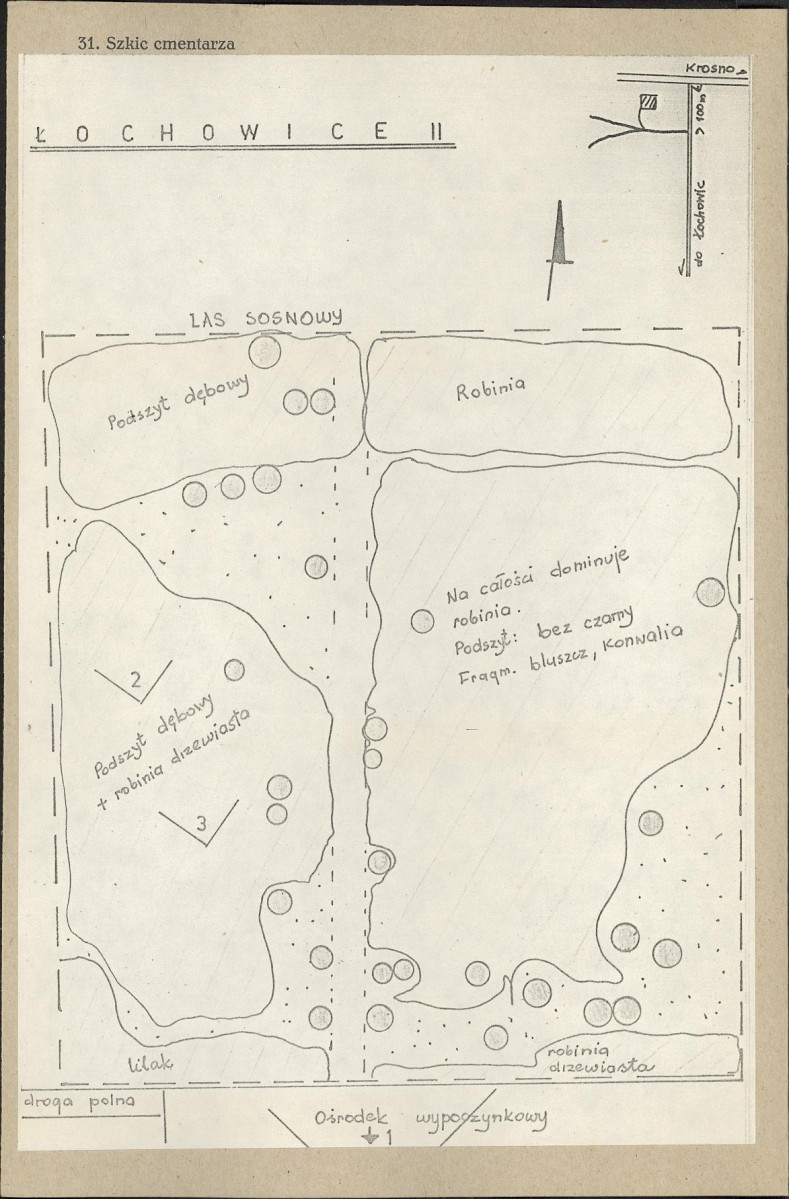 31. Szkic cmentarza
Krosno
ŁOCHOWICE II
> 100 m
do Łochowic
LAS SOSNOWY
Podszyt dębowy
Robinia
Na całości dominuje
robinia.
Podszyt: bez czarny
Fragm. bluszcz, konwalia
2
Podszyt dębowy
+ robinia drzewiasta
3
lilak
robinia
drzewiasta
droga polna
Ośrodek wypoczynkowy
1